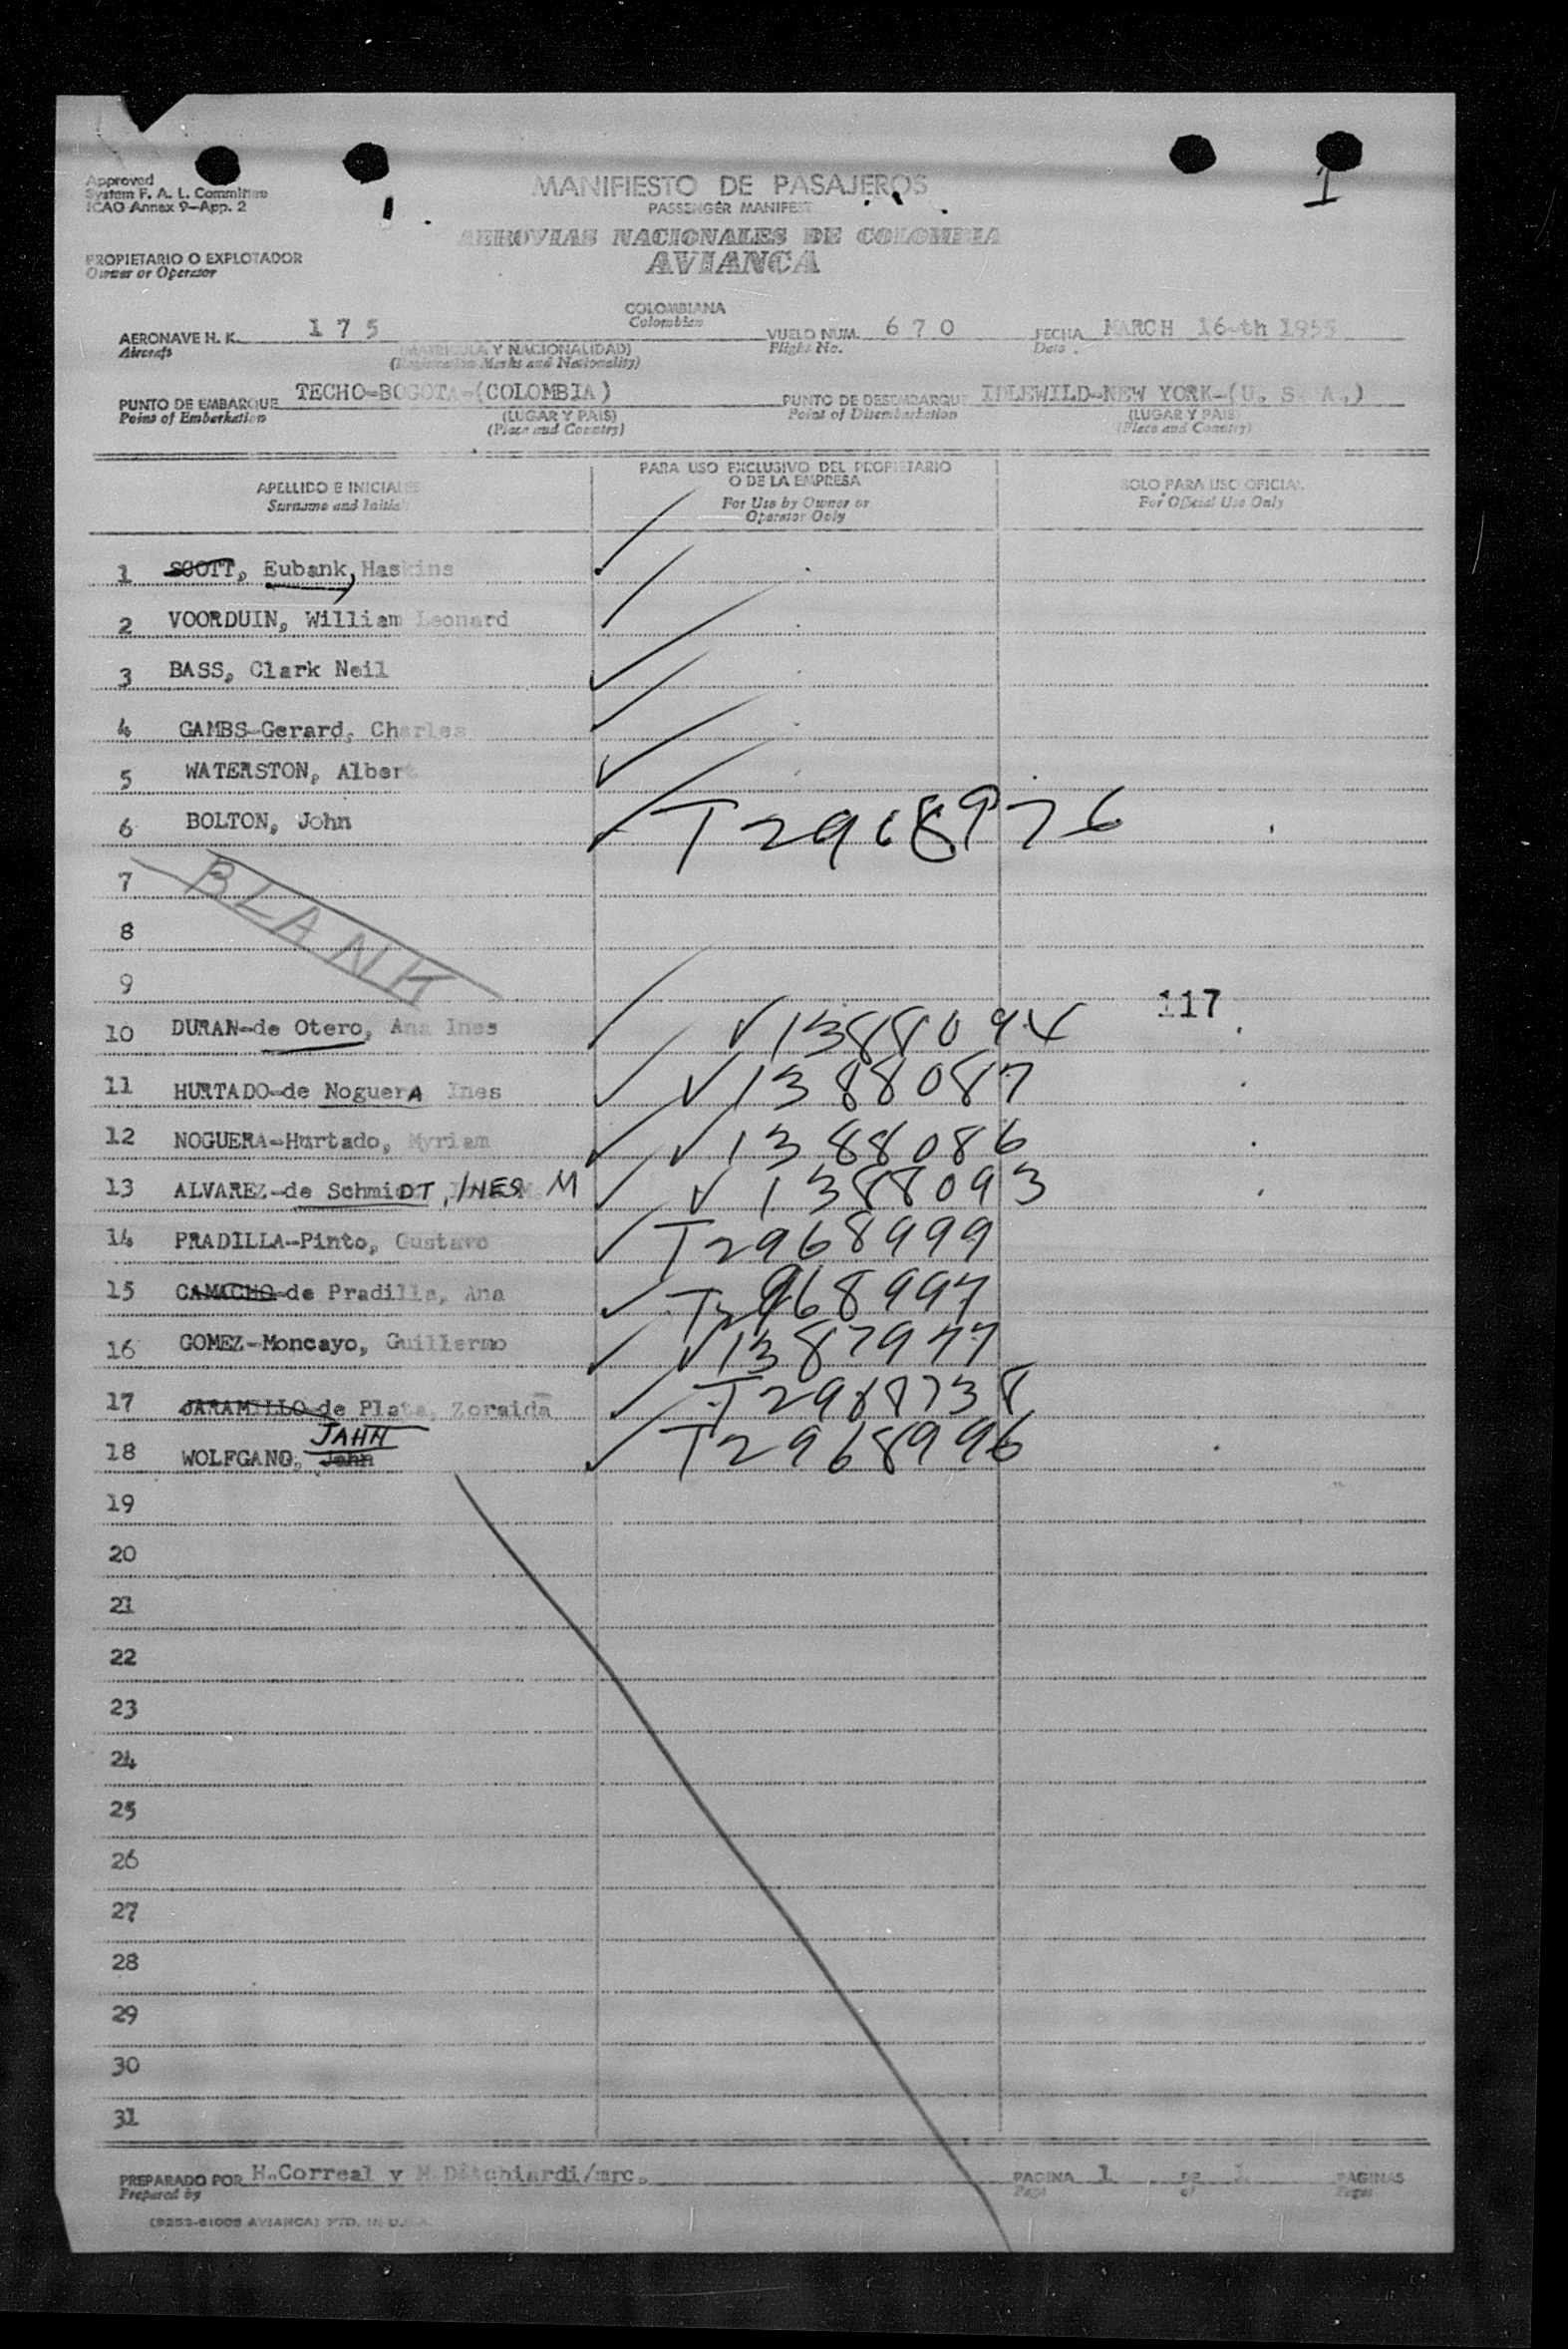 Approved
System F. A. L. Committee
ICAO Annex 9-App. 2
1
MANIFIESTO DE PASAJEROS
PASSENGER MANIFEST
AEROVIAS NACIONALES DE COLOMBIA
AVIANCA
PROPIETARIO O EXPLOTADOR
Owner or Operator
COLOMBIANA
Colombian
AERONAVE H. K. 175 VUELO NUM. 670 FECHA MARCH 16-th 1955
Aircraft (MATRICULA Y NACIONALIDAD) Flight No. Date
(Registration Marks and Nationality)
PUNTO DE EMBARQUE TECHO-BOGOTA-(COLOMBIA) PUNTO DE DESEMBARQUE IDLEWILD-NEW YORK-(U. S. A.)
Point of Embarkation (LUGAR Y PAIS) Point of Disembarkation (LUGAR Y PAIS)
(Place and Country) (Place and Country)
APELLIDO E INICIALES PARA USO EXCLUSIVO DEL PROPIETARIO SOLO PARA USO OFICIAL
Surname and Initials O DE LA EMPRESA For Official Use Only
For Use by Owner or
Operator Only
1 SCOTT, Eubank, Haskins
2 VOORDUIN, William Leonard
3 BASS, Clark Neil
4 GAMBS-Gerard, Charles
5 WATERSTON, Albert
6 BOLTON, John ✓ T2968976
7 BLANK
8
9
117
10 DURAN-de Otero, Ana Ines ✓ 1388094
11 HURTADO-de NoguerA Ines ✓ ✓ 1388087
12 NOGUERA-Hurtado, Myriam ✓ ✓ 1388086
13 ALVAREZ-de SchmiDT, INES M ✓ ✓ 1388093
14 PRADILLA-Pinto, Gustavo ✓ T2968999
15 CAMACHO-de Pradilla, Ana ✓ T2968997
16 GOMEZ-Moncayo, Guillermo ✓ ✓ 1387977
17 JARAMILLO-de Plata, Zoraida ✓ T2968738
JAHN
18 WOLFGANG, Jahn ✓ T2968996
19
20
21
22
23
24
25
26
27
28
29
30
31
PREPARADO POR H.Correal y M /mrc. PAGINA 1 DE 1 PAGINAS
Prepared by Page of Pages
AVIANCA) PTD. IN U.S.A.